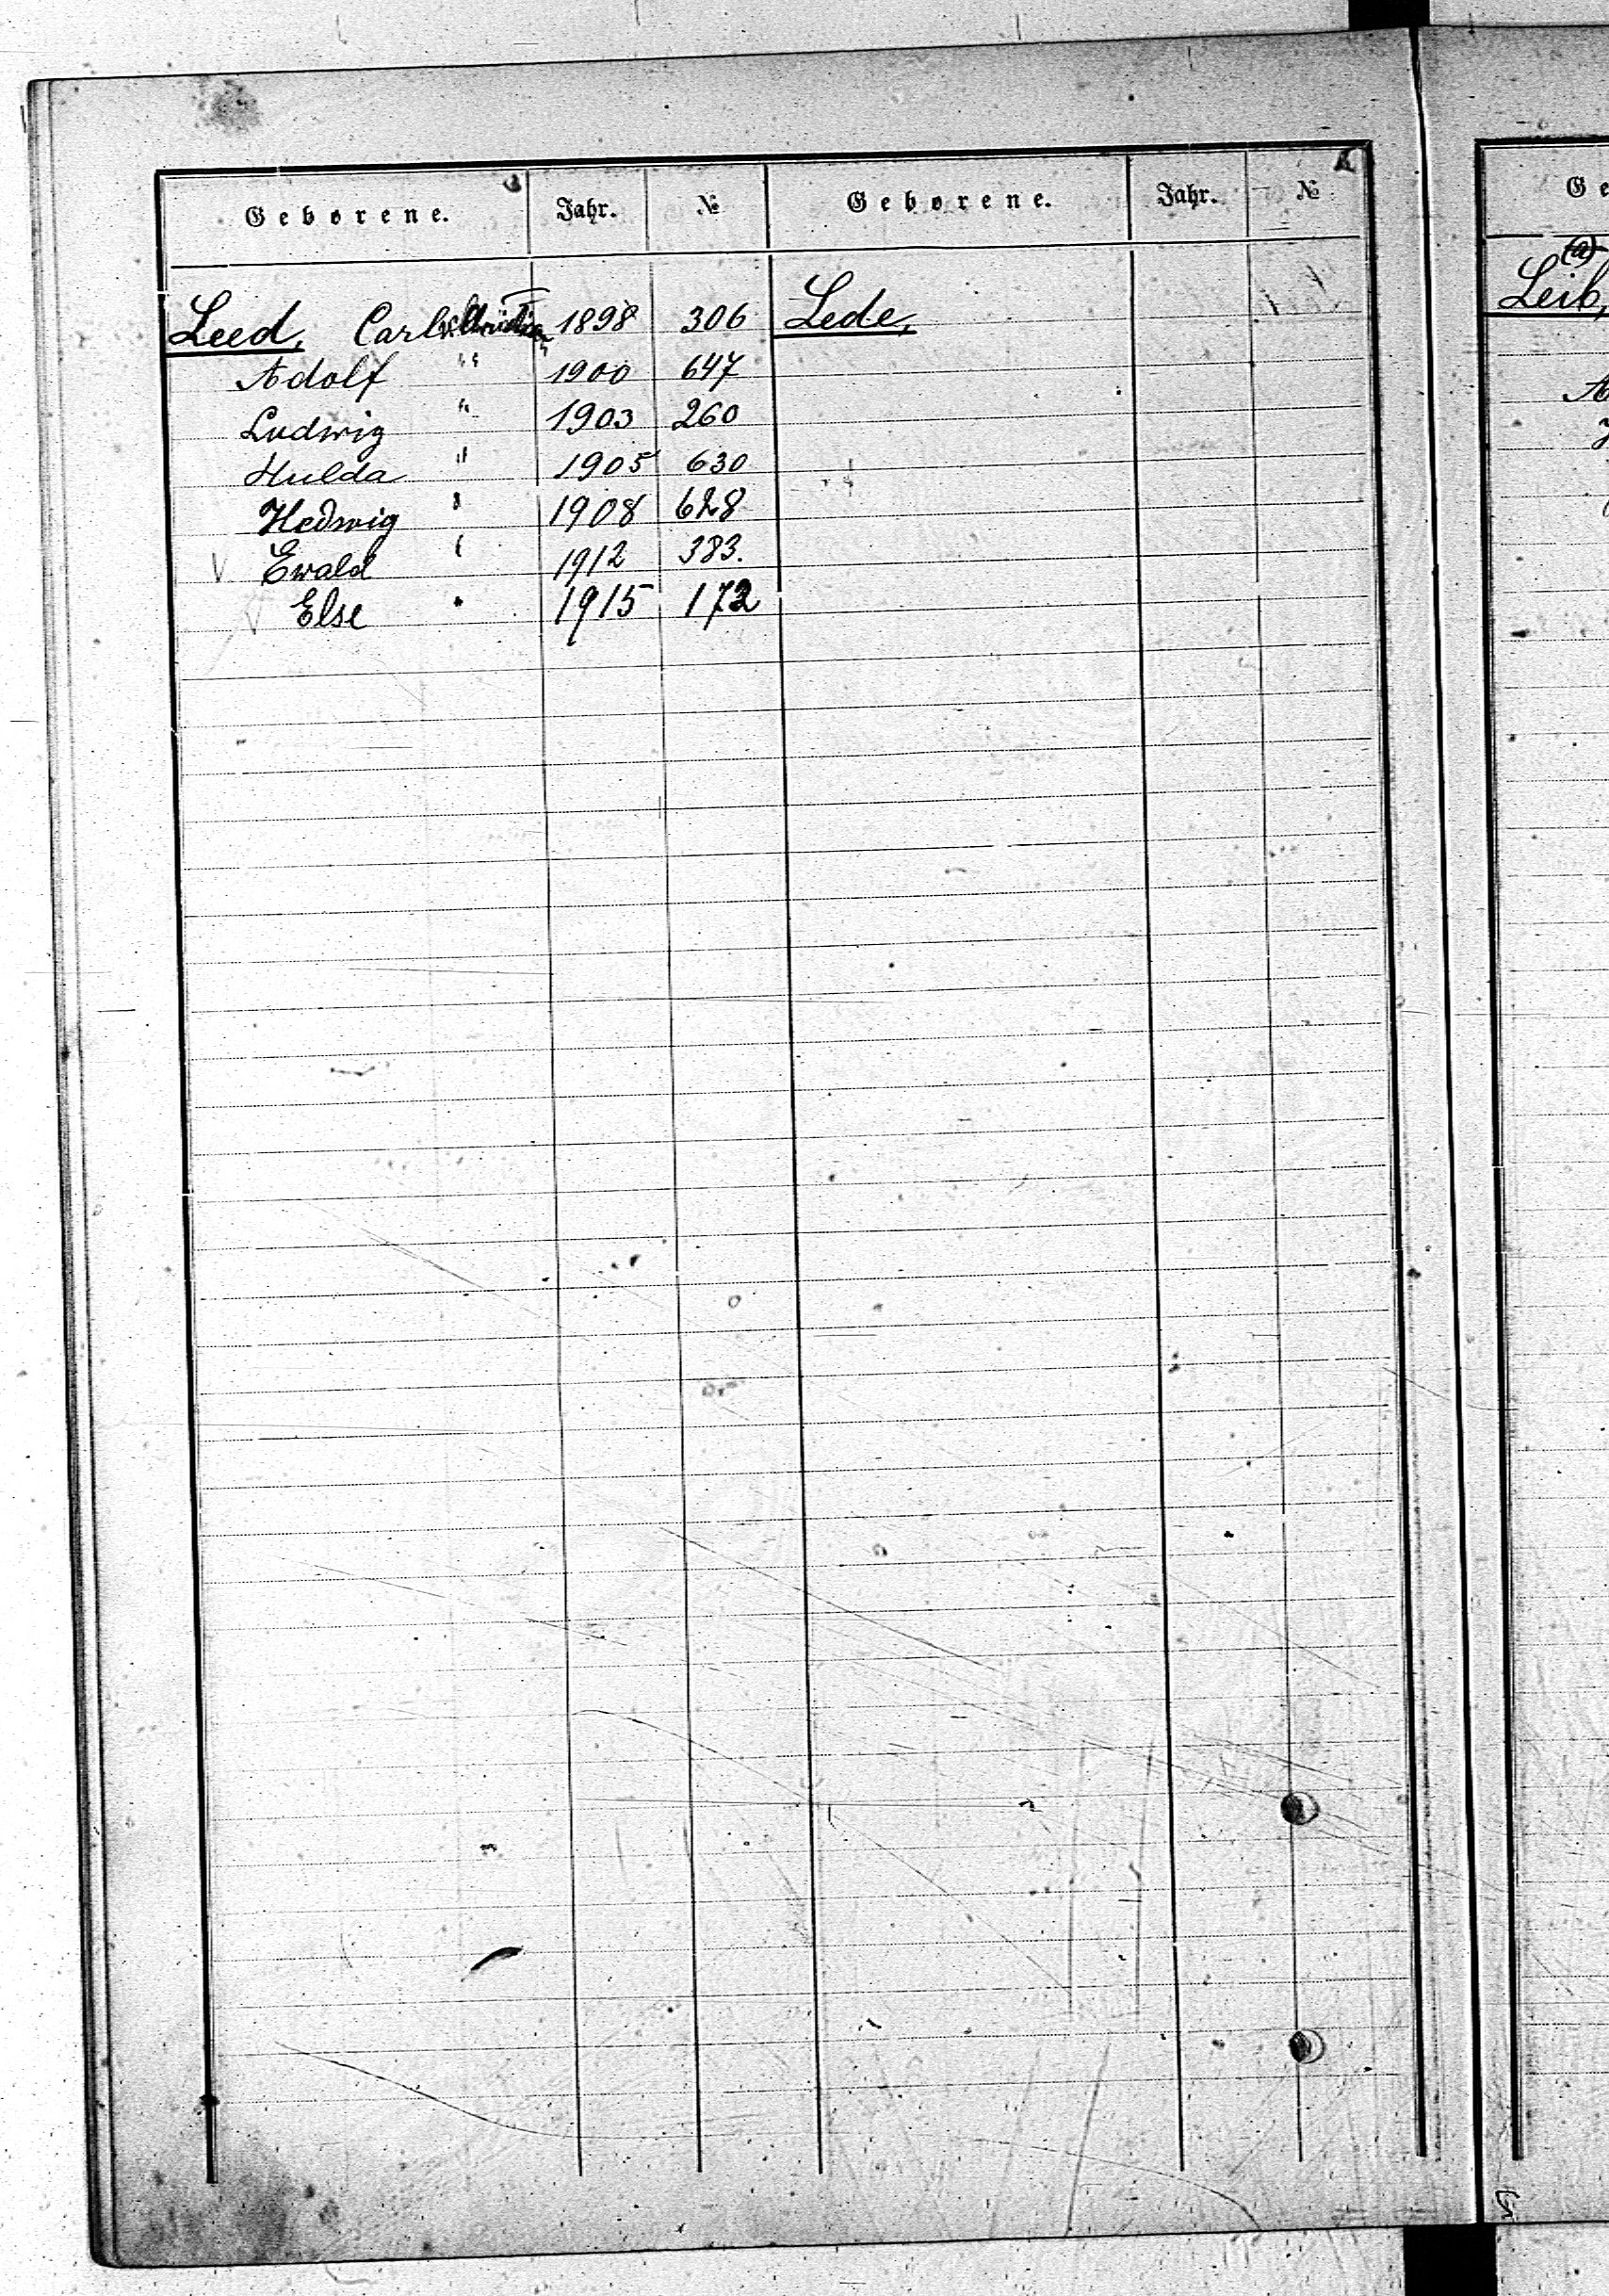 Geborene. Jahr. № Geborene. Jahr. №
Leed, Carl Christian 1898 306
Adolf " 1900 647
Ludwig " 1903 260
Hulda " 1905 630
Hedwig " 1908 628
Ewald " 1912 383.
Else " 1915 172
Lede,
Ge
(a)
Leib,